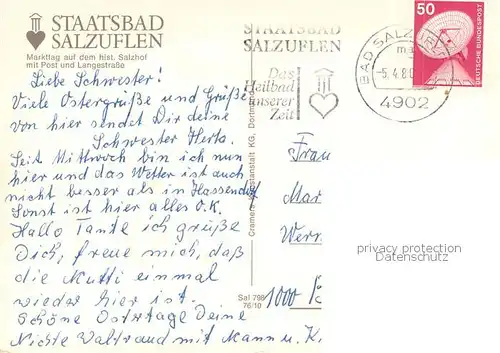 STAATSBAD
SALZUFLEN
Markttag auf dem hist. Salzhof
mit Post und Langestraße
STAATSBAD
SALZUFLEN
Das
Heilbad
unserer
Zeit
BAD SALZUFLEN
-5.4.80
4902
50
DEUTSCHE BUNDESPOST
Liebe Schwester!
Viele Ostergrüße und Grüße
von hier sendet Dir deine
Schwester Herta.
Seit Mittwoch bin ich nun
hier und das Wetter ist auch
nicht besser als in Hassendorf
Sonst ist hier alles O.K.
Hallo Tante ich grüße
Dich, freue mich, daß
die Mutti einmal
wieder hier ist.
Schöne Ostertage Deine
Nichte Waltraud mit Mann u. K.
Cramers Kunstanstalt KG, Dortmund
Sal 798
76/10
Frau
Mar
Wern
1000
privacy protection
Datenschutz